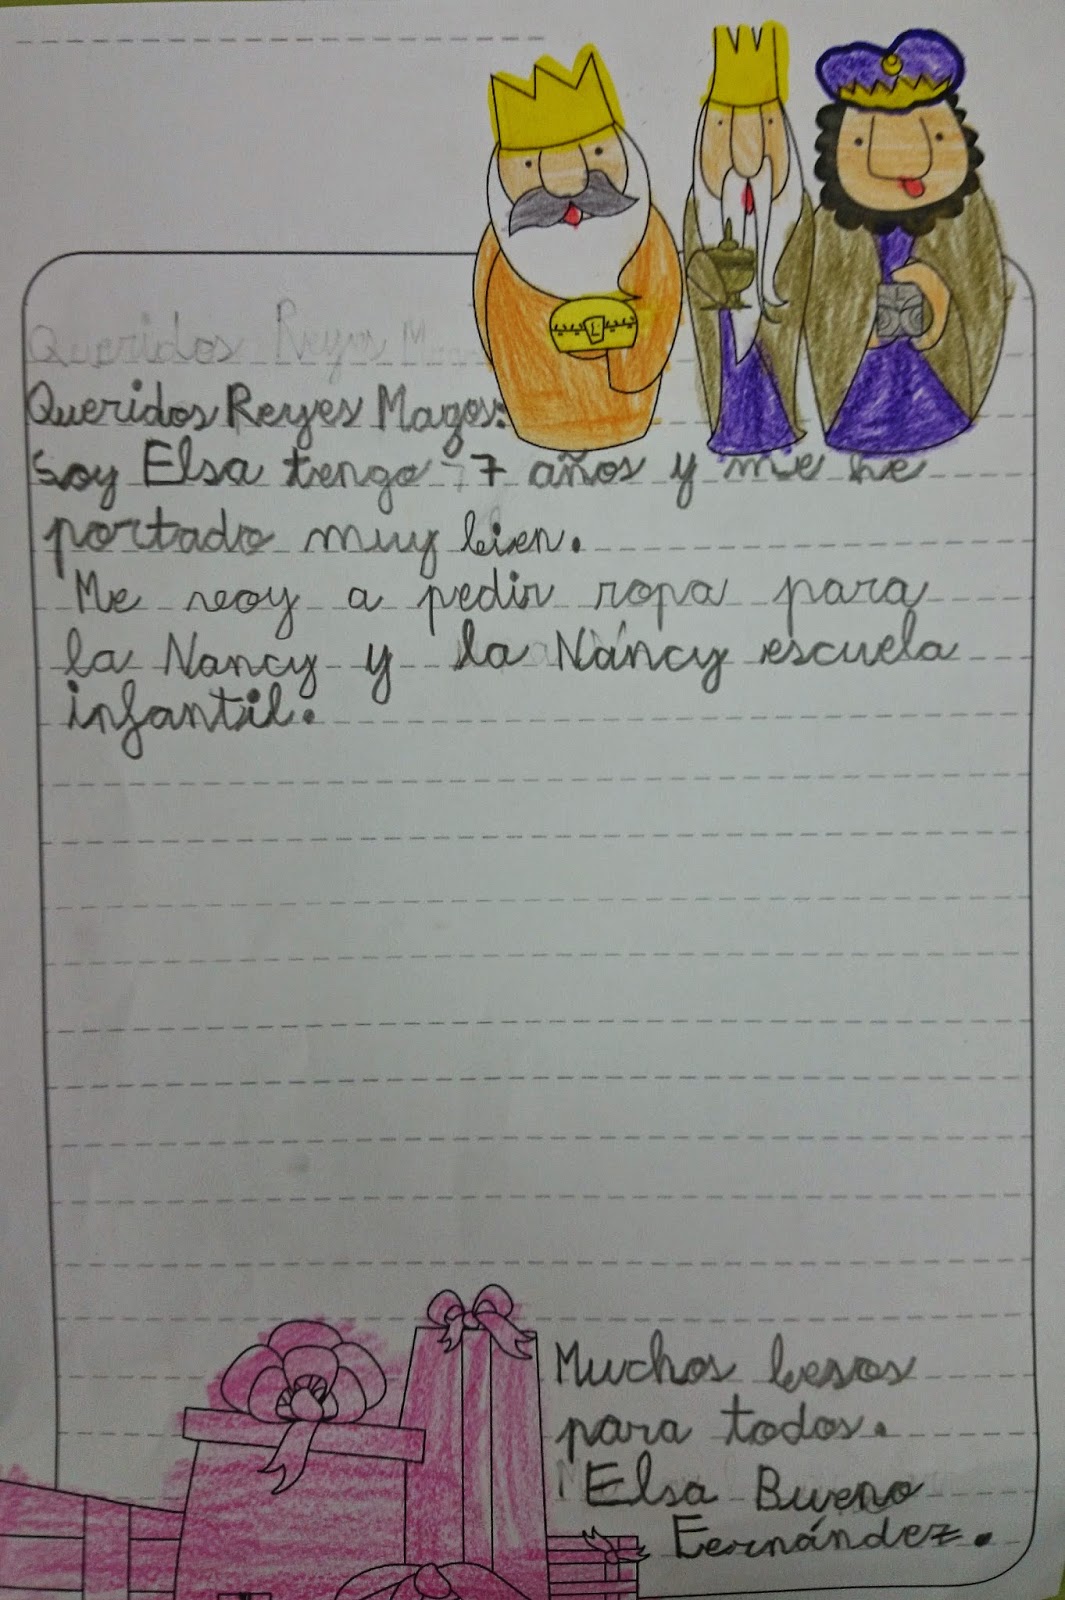 Queridos Reyes M
Queridos Reyes Magos:
Soy Elsa tengo 7 años y me he
portado muy bien.
Me voy a pedir ropa para
la Nancy y la Náncy escuela
infantil.
Muchos besos
para todos.
Elsa Bueno
Fernández.